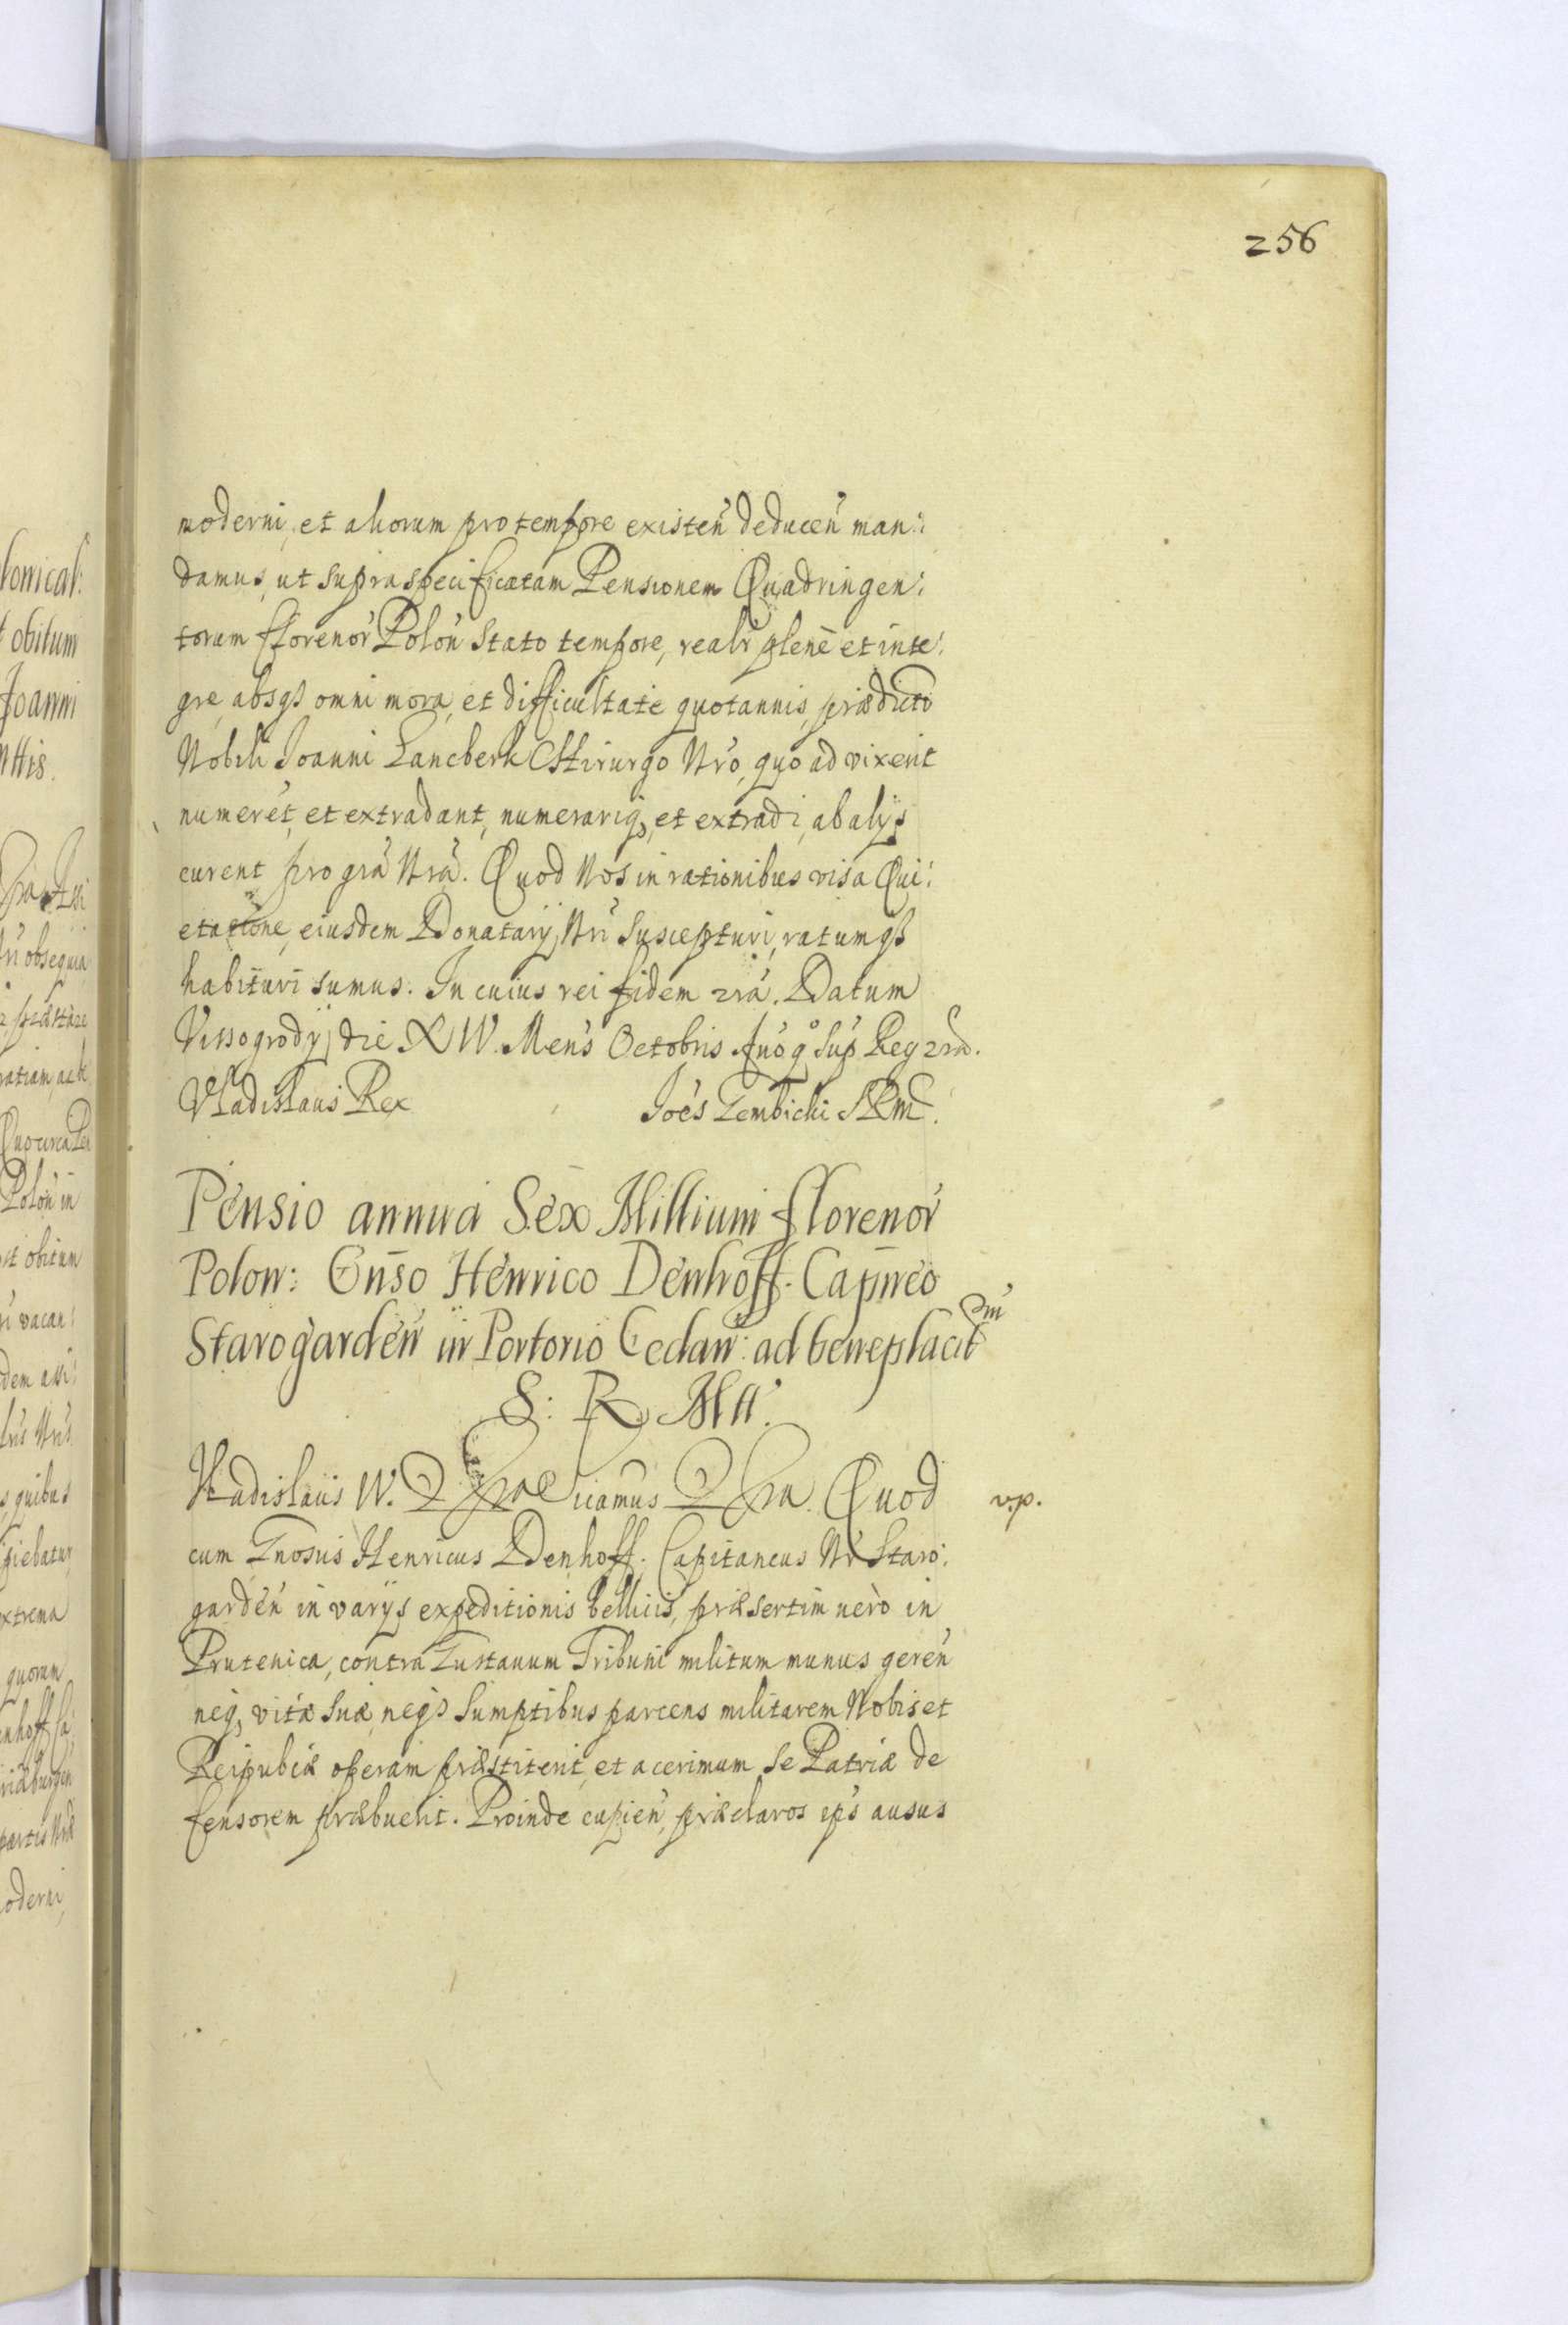 256
moderni, et aliorum pro tempore existen̄ deducen̄ man:
damus, ut supraspecificatam Pensionem Quadringen:
torum fflorenor̄ Polon̄ stato tempore, realr̄ plenè et inte:
gre, absqȝ omni mora, et difficultate quotannis, prædicto
Nobili Joanni Lancberk Chirurgo Nrō, quo ad vixerit
numeret, et extradant, numerariqȝ, et extradi, ab alijs
curent pro grā Nrā. Quod Nos in rationibus visa Qui:
etatione, eiusdem Donatarij Nrī suscepturi, ratumqȝ
habituri sumus. In cuius rei fidem 2rā. Datum
Vissogrodij die XIV. Mens̄ Octobris Anō qº sup̄ Reg 2rā.
Vladislaus Rex Joēs Gembicki SRM.
Pensio annua Sex Millium florenor̄
Polon: Gn̄so Henrico Denhoff. Capn̄eo
Starogarden̄ in Portorio Gedan: ad beneplacit
S: R. Mtt.
Vladislaus IV. Quod v.p.
cum Gnosus Henricus Denhoff. Capitaneus Nr̄ Staro:
garden̄ in varijs expeditionis bellicis, præsertim uerò in
Prutenica, contra Gustauum Tribuni militum munus geren̄
neqȝ vitæ suæ, neqȝ sumptibus parcens militarem Nobis et
Reipubcæ operam præstiterit, et acerimum se Patriæ de
fensorem præbuerit. Proinde cupien̄, præclaros ips̄ ausus
lonical:
obitum
Joanni
obsequia
obitum
vacan:
quibus
extrema
quorum
oderni,